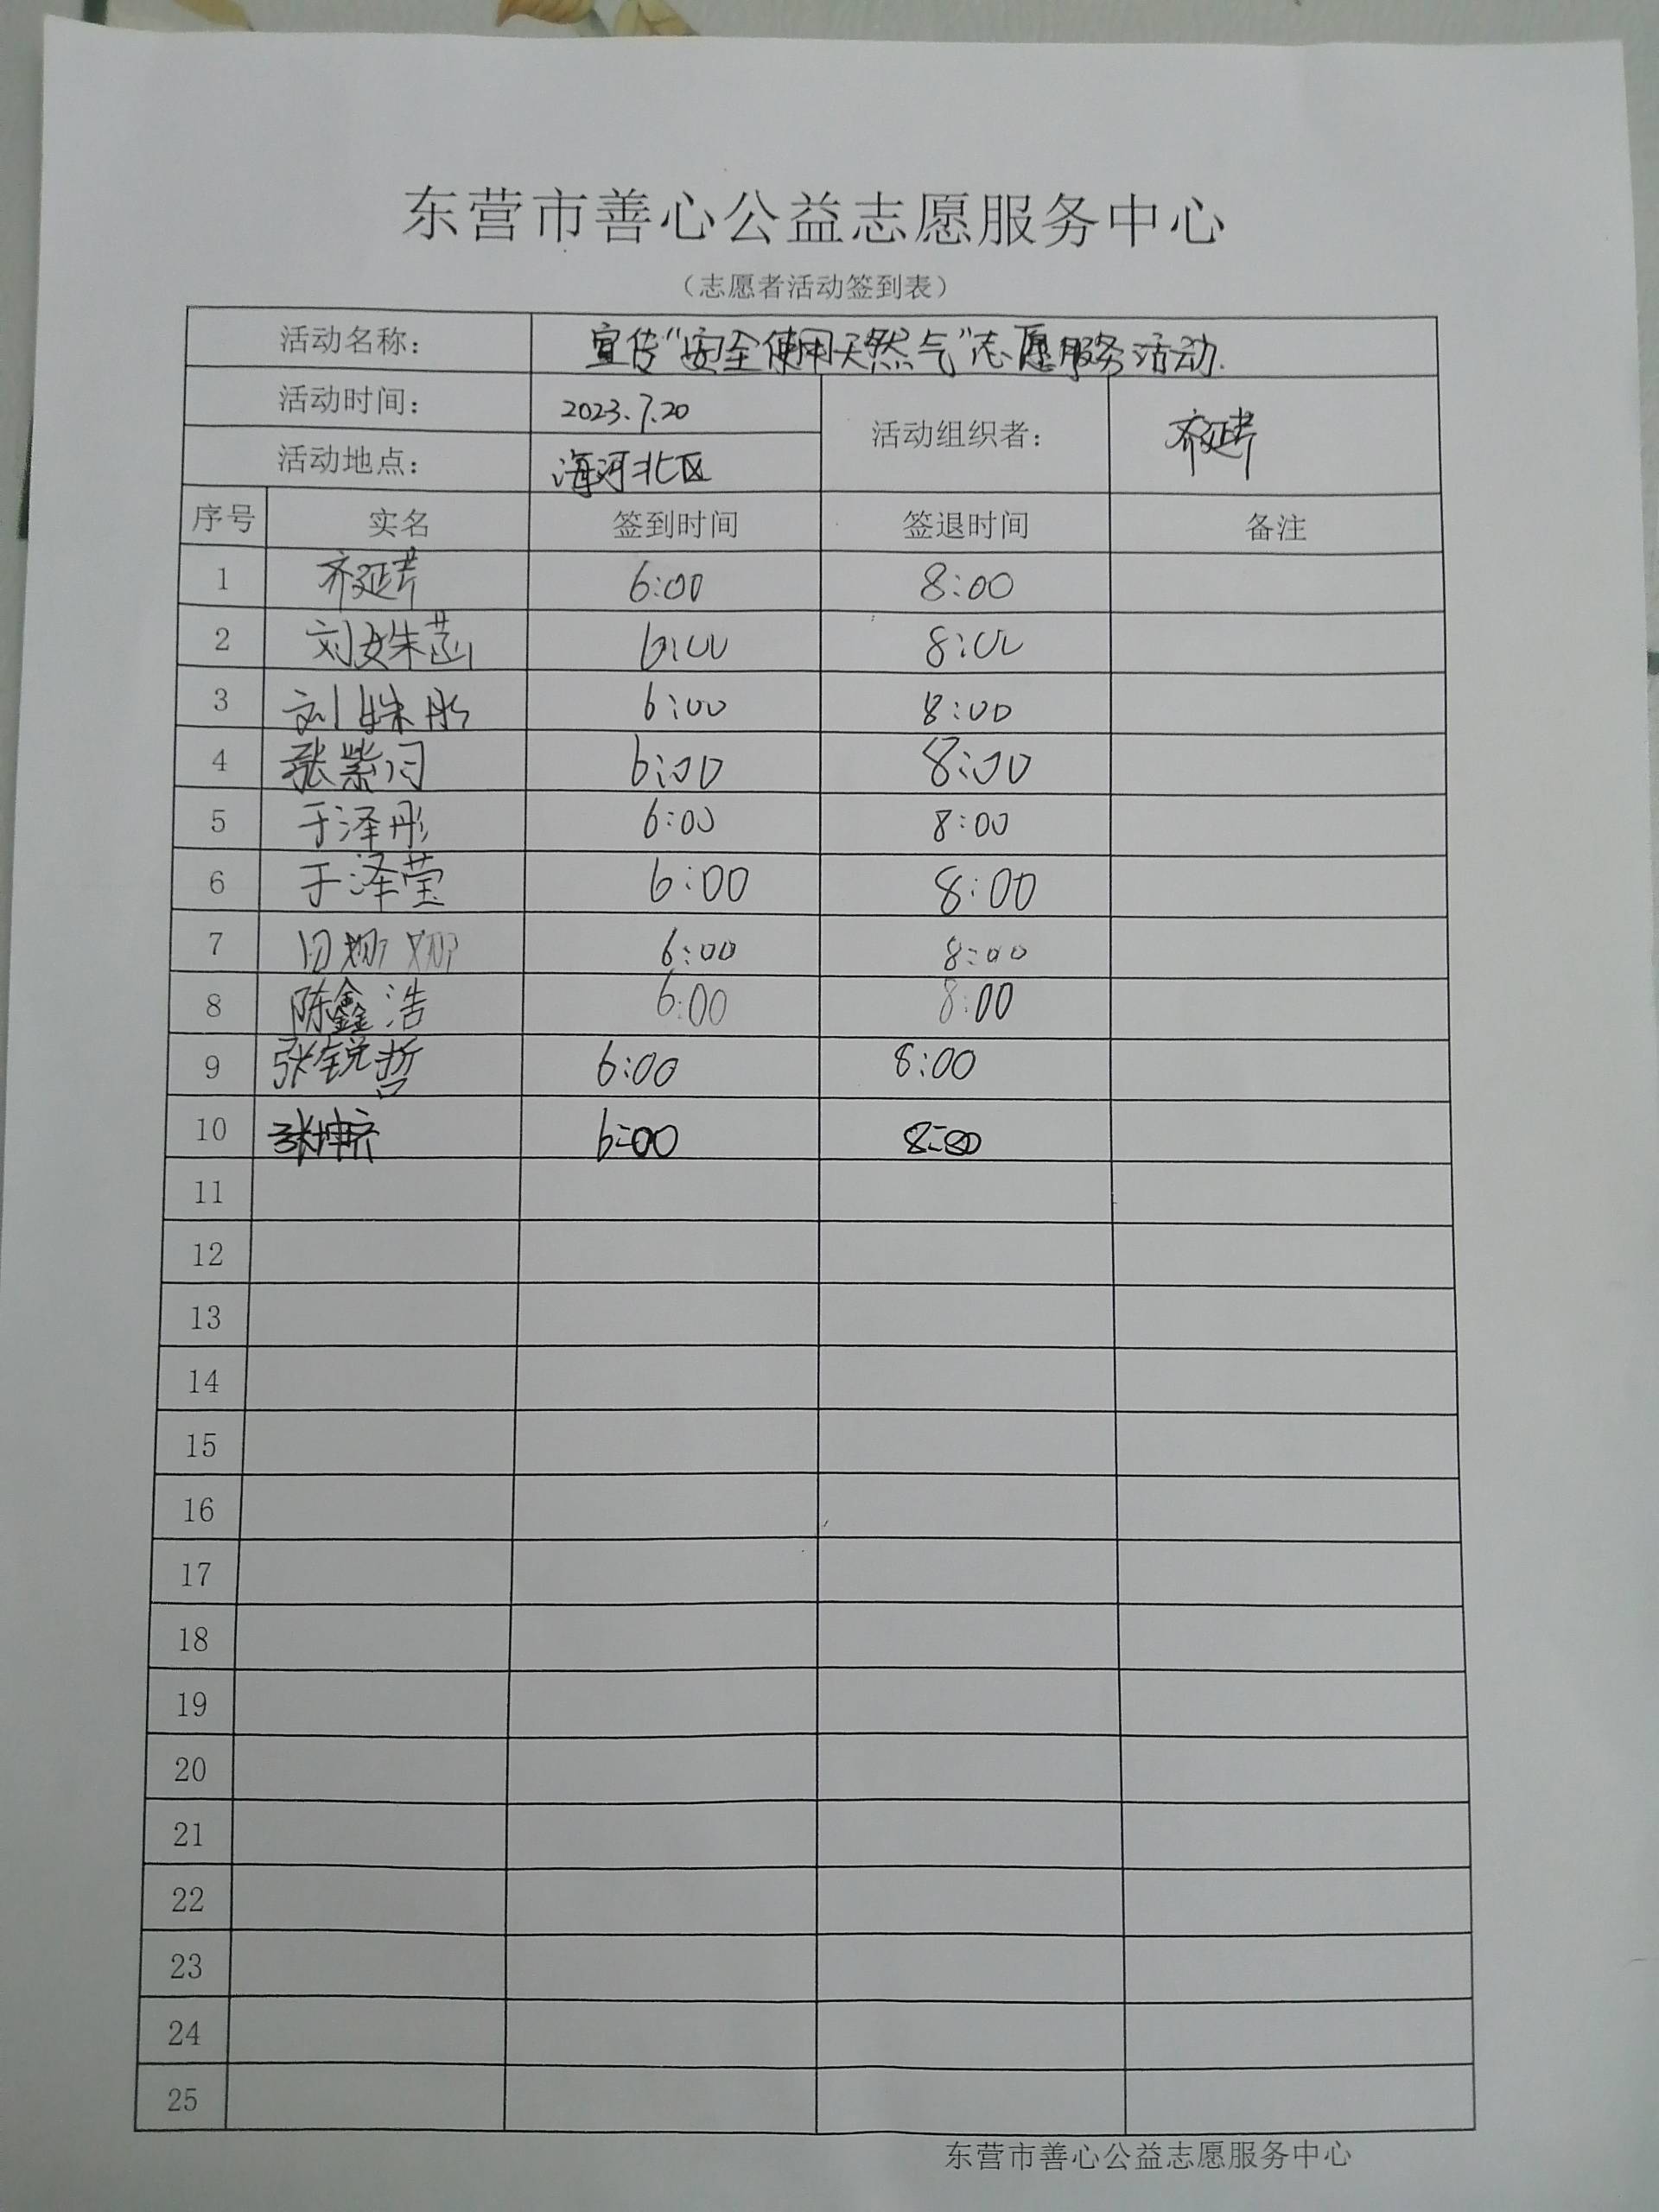 东营市善心公益志愿服务中心
（志愿者活动签到表）
活动名称： 宣传“安全使用天然气”志愿服务活动.
活动时间： 2023.7.20 活动组织者： 齐延芹
活动地点： 海河北区
序号 实名 签到时间 签退时间 备注
1 齐延芹 6:00 8:00
2 刘姝菡 6:00 8:00
3 刘姝彤 6:00 8:00
4 张紫闫 6:00 8:00
5 于泽彤 6:00 8:00
6 于泽莹 6:00 8:00
7 6:00 8:00
8 陈鑫浩 6:00 8:00
9 张锐哲 6:00 8:00
10 张坤齐 6:00 8:00
11
12
13
14
15
16
17
18
19
20
21
22
23
24
25
东营市善心公益志愿服务中心